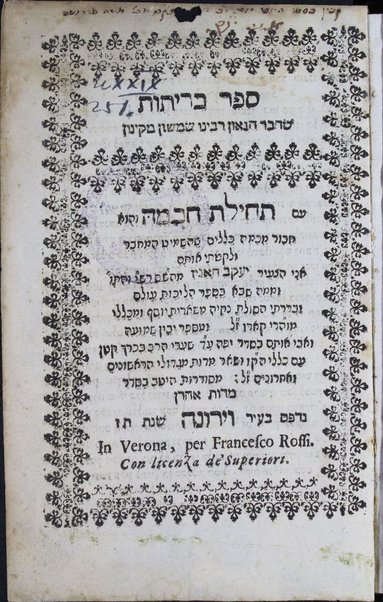 XXIX
25
ספר כריתות
שחבר הגאון רבינו שמשון מקינון
עם תחילת חכמה והוא
חבור מכמה כללים שהשמיט המחבר
ולקטתי אותם
אני הצעיר יעקב חאגיז
וממה שבא בספר הליכות עולם
וביררתי הסולת נקיה משארית יוסף ומכללי
מוהרי קארו זל ומספר יבין שמועה
ואבי אותם כסדר יפה עד שערי הרב בכרך קטן
עם כללי הקו ושאר מדות מגדולי הראשונים
ואחרונים זל מסודרות היטב בסדר
מדות אהרן
נדפס בעיר וירונה שנת תז
In Verona, per Francesco Rossi.
Con licenza de' Superiori.